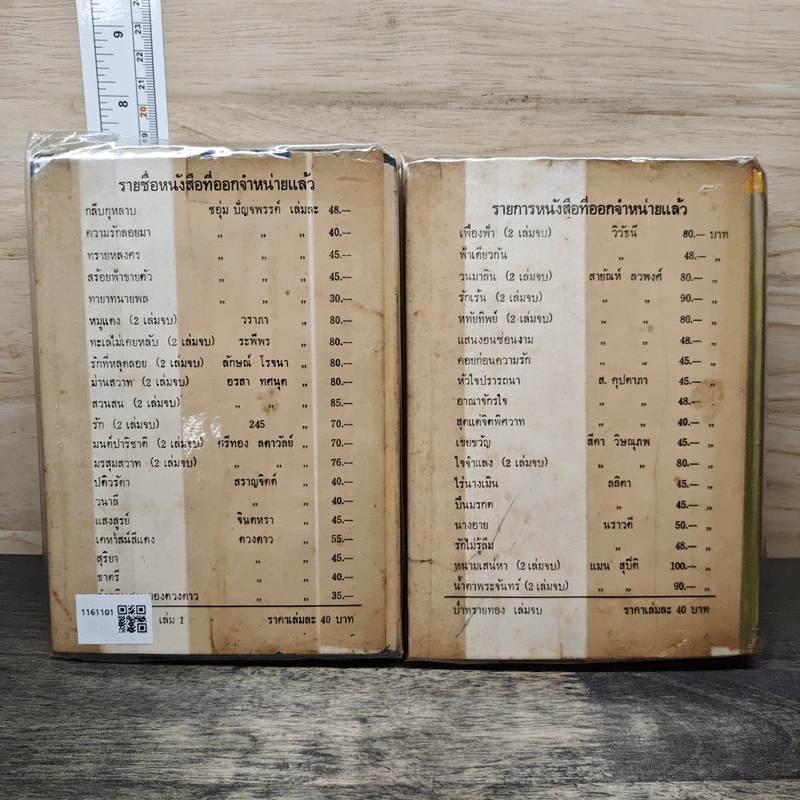 9
8
23
22
21
20
19
รายชื่อหนังสือที่ออกจำหน่ายแล้ว
กลีบกุหลาบ ชอุ่ม ปัญจพรรค์ เล่มละ 48.—
ความรักลอยมา " " " 40.—
ทรายหลงศร " " " 45.—
สร้อยฟ้าขายตัว " " " 45.—
ทายาทนายพล " " " 30.—
หมูแดง (2 เล่มจบ) วราภา " 80.—
ทะเลไม่เคยหลับ (2 เล่มจบ) ระพีพร " 80.—
รักที่หลุดลอย (2 เล่มจบ) ลักษณ์ โรจนา " 80.—
ม่านสวาท (2 เล่มจบ) อรสา ทศนุต " 80.—
สวนสน (2 เล่มจบ) " " " 85.—
รัก (2 เล่มจบ) 245 " 70.—
มนต์ปาริชาติ (2 เล่มจบ) ศรีทอง ลดาวัลย์ " 70.—
มรสุมสวาท (2 เล่มจบ) " " " 76.—
ปดิวรัดา สราญจิตต์ " 40.—
วนาลี " " 40.—
แสงสูรย์ จินตหรา " 45.—
เคหาสน์สีแดง ดวงดาว " 55.—
สุริยา " " 45.—
ธาตรี " " 40.—
ของดวงดาว " " 35.—
1161101
เล่ม 1 ราคาเล่มละ 40 บาท
รายการหนังสือที่ออกจำหน่ายแล้ว
เฟื่องฟ้า (2 เล่มจบ) วิวัธนี 80.— บาท
ฟ้าเดียวกัน " 48.— "
วนมาลิน (2 เล่มจบ) สายัณห์ ลวพงศ์ 80.— "
รักเร้น (2 เล่มจบ) " " 90.— "
หทัยทิพย์ (2 เล่มจบ) " " 80.— "
แสนงอนซ่อนงาม " " 48.— "
คอยก่อนความรัก " " 45.— "
หัวใจปรารถนา ส. คุปตาภา 45.— "
อาณาจักรใจ " " 48.— "
สุดแต่จิตพิศวาท " " 40.— "
เชยขวัญ สีดา วิษณุภพ 45.— "
ใจจำแลง (2 เล่มจบ) " " 80.— "
ไร่นางเมิน ลลิตา 45.— "
ปิ่นมรกต " 45.— "
นางอาย นราวดี 50.— "
รักไม่รู้ลืม " 48.— "
หนามเสน่หา (2 เล่มจบ) แมน สุปิติ 100.— "
น้ำตาพระจันทร์ (2 เล่มจบ) " " 90.— "
บำทรายทอง เล่มจบ ราคาเล่มละ 40 บาท